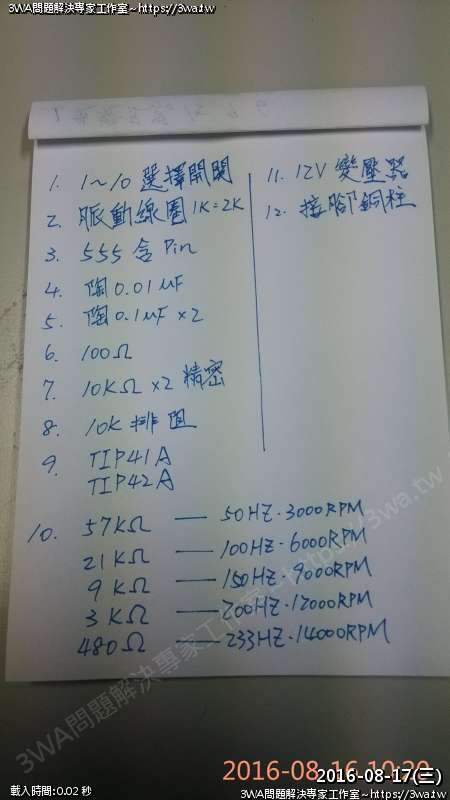 3WA問題解決專家工作室~https://3wa.tw
1. 1~10 選擇開關
2. 脈動線圈 1K=2K
3. 555 含 Pin
4. 陶 0.01 μF
5. 陶 0.1 μF ×2
6. 100Ω
7. 10KΩ ×2 精密
8. 10K 排阻
9. TIP41A
TIP42A
10. 57KΩ — 50HZ·3000RPM
21KΩ — 100HZ·6000RPM
9KΩ — 150HZ·9000RPM
3KΩ — 200HZ·12000RPM
480Ω — 233HZ·14000RPM
11. 12V 變壓器
12. 接腳銅柱
3WA問題解決專家工作室~https://3wa.tw
2016-08-16 10:20
2016-08-17(三)
載入時間:0.02 秒
3WA問題解決專家工作室~https://3wa.tw